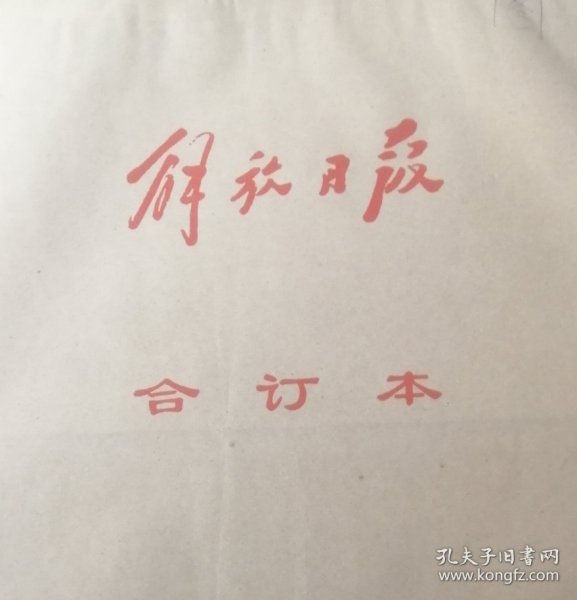 解放日报
合订本
孔夫子旧書网
www.kongfz.com